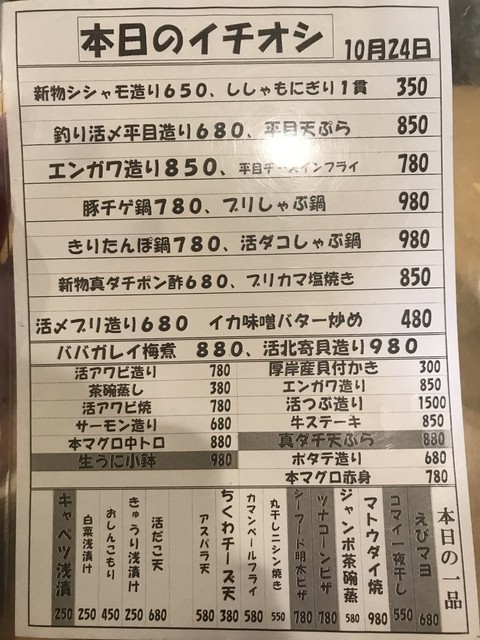 本日のイチオシ 10月24日
新物シシャモ造り650、ししゃもにぎり1貫 350
釣り活〆平目造り680、平目天ぷら 850
エンガワ造り850、平目チーズインフライ 780
豚チゲ鍋780、ブリしゃぶ鍋 980
きりたんぽ鍋780、活ダコしゃぶ鍋 980
新物真ダチポン酢680、ブリカマ塩焼き 850
活〆ブリ造り680 イカ味噌バター炒め 480
ババガレイ梅煮 880、活北寄貝造り980
活アワビ造り 780
茶碗蒸し 380
活アワビ焼 780
サーモン造り 680
本マグロ中トロ 880
生うに小鉢 980
厚岸産貝付かき 300
エンガワ造り 850
活つぶ造り 1500
牛ステーキ 850
真ダチ天ぷら 880
ホタテ造り 680
本マグロ赤身 780
本日の一品
えびマヨ 680
コマイ一夜干し 550
マトウダイ焼 980
ジャンボ茶碗蒸 580
ツナコーンピザ 780
シーフード明太ピザ 780
丸干しニシン焼き 550
カマンベールフライ 580
ちくわチーズ天 380
アスパラ天 580
活だこ天 680
きゅうり浅漬け 250
おしんこもり 450
白菜浅漬け 250
キャベツ浅漬 250